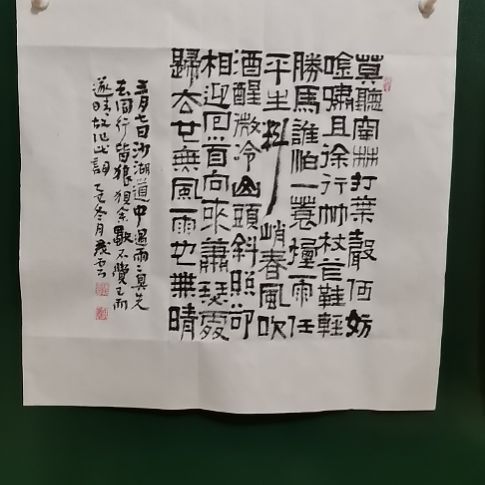 莫聽穿林打葉聲何妨
唫嘯且徐行竹杖芒鞋輕
勝馬誰怕一蓑煙雨任
平生料峭春風吹
酒醒微冷山頭斜照卻
相迎回首向來蕭瑟處
歸去也無風雨也無晴
三月七日沙湖道中遇雨雨具先
去同行皆狼狽余獨不覺已而
遂晴故作此詞乙巳冬月